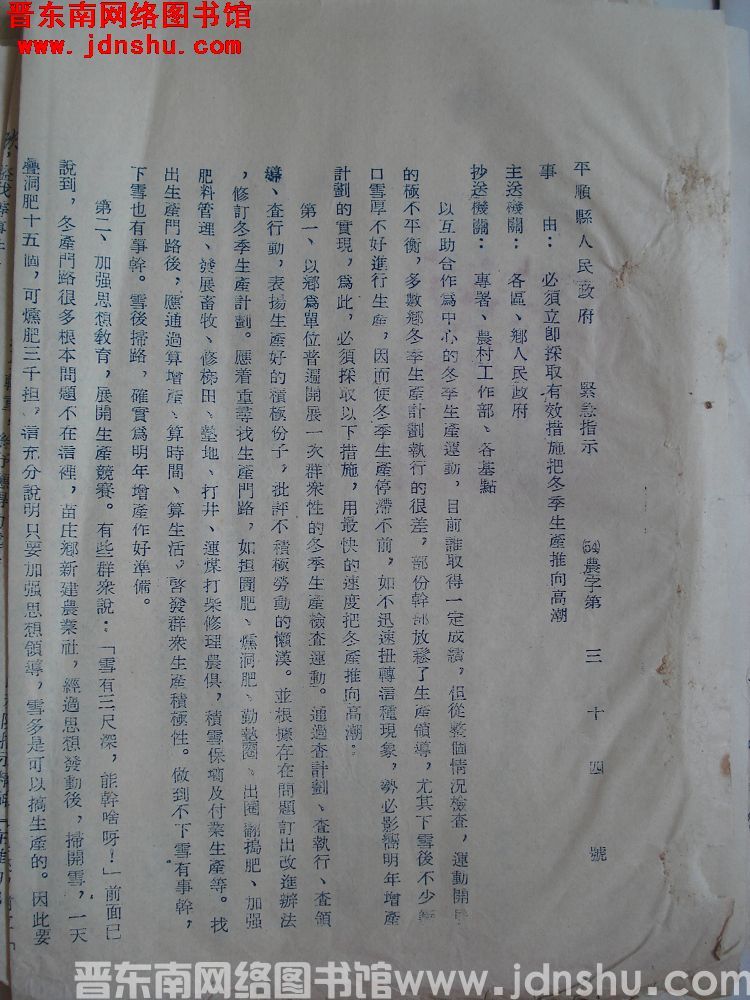 晋东南网络图书馆
www.jdnshu.com
平順縣人民政府 緊急指示
(54)農字第三十四號
事由：必須立即採取有效措施把冬季生產推向高潮
主送機關：各區、鄉人民政府
抄送機關：專署、農村工作部、各基點
以互助合作爲中心的冬季生產運動，目前雖取得一定成績，但從整個情况檢查，運動開展
的極不平衡，多數鄉冬季生產計劃執行的很差，部份幹部放鬆了生產領導，尤其下雪後不少
口雪厚不好進行生產，因而使冬季生產停滯不前，如不迅速扭轉這種現象，勢必影響明年增產
計劃的實現，爲此，必須採取以下措施，用最快的速度把冬產推向高潮。
第一、以鄉爲單位普遍開展一次群衆性的冬季生產檢查運動。通過查計劃、查執行、查領
導、查行動，表揚生產好的積極份子，批評不積極勞動的懶漢。並根據存在問題訂出改進辦法
，修訂冬季生產計劃。應着重尋找生產門路，如担圊肥、燻洞肥、勤墊圈、出圈翻搗肥、加强
肥料管理、發展畜牧、修梯田、墊地、打井、運煤打柴修理農俱，積雪保墒及付業生產等。找
出生產門路後，應通過算增產、算時間、算生活，啓發群衆生產積極性。做到不下雪有事幹，
下雪也有事幹。雪後掃路，確實爲明年增產作好準備。
第二、加强思想敎育，展開生產競賽。有些群衆說：「雪有三尺深，能幹啥呀！」前面已
說到，冬產門路很多根本問題不在這裡，苗庄鄉新建農業社，經過思想發動後，掃開雪，一天
壘洞肥十五個，可燻肥三千担，這充分說明只要加强思想領導，雪多是可以搞生產的。因此要
晋东南网络图书馆www.jdnshu.com